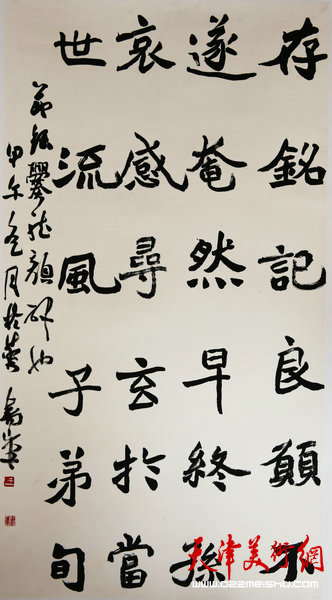 存銘記良願不
遂奄然早終孫
哀感尋玄於當
世流風子弟旬
節録爨龙顏碑
甲午冬月於
天津美術網
www.022meishu.com